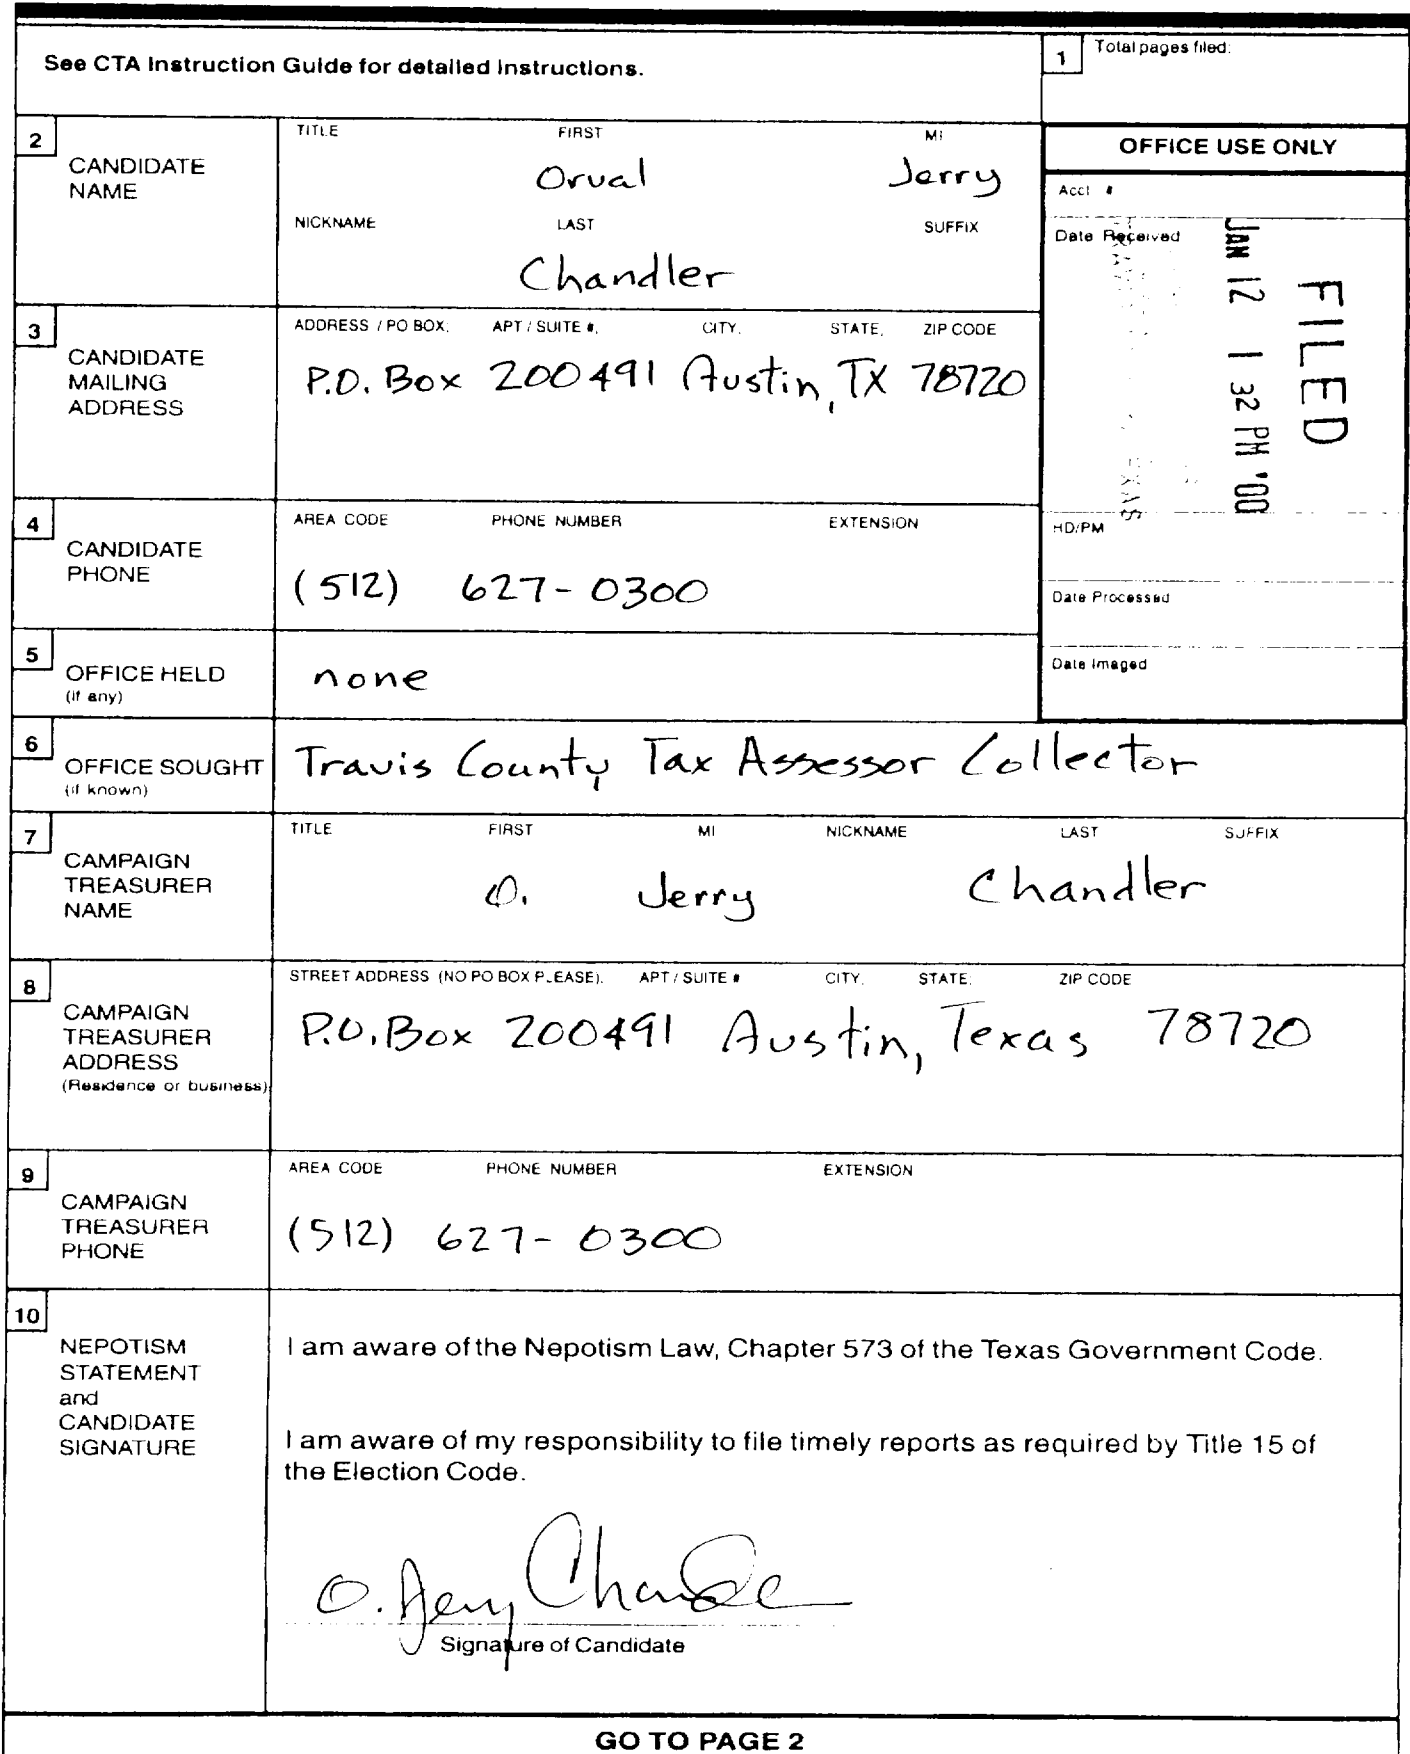 See CTA Instruction Guide for detailed instructions.
1 Total pages filed:
2 CANDIDATE NAME
TITLE FIRST MI
Orval Jerry
NICKNAME LAST SUFFIX
Chandler
OFFICE USE ONLY
Acct #
Date Received
FILED
JAN 12 1 32 PM '00
HD/PM
Date Processed
Date Imaged
3 CANDIDATE MAILING ADDRESS
ADDRESS / PO BOX; APT / SUITE #; CITY; STATE; ZIP CODE
P.O. Box 200491 Austin, TX 78720
4 CANDIDATE PHONE
AREA CODE PHONE NUMBER EXTENSION
(512) 627-0300
5 OFFICE HELD (if any)
none
6 OFFICE SOUGHT (if known)
Travis County Tax Assessor Collector
7 CAMPAIGN TREASURER NAME
TITLE FIRST MI NICKNAME LAST SUFFIX
O. Jerry Chandler
8 CAMPAIGN TREASURER ADDRESS (Residence or business)
STREET ADDRESS (NO PO BOX PLEASE); APT / SUITE # CITY; STATE; ZIP CODE
P.O. Box 200491 Austin, Texas 78720
9 CAMPAIGN TREASURER PHONE
AREA CODE PHONE NUMBER EXTENSION
(512) 627-0300
10 NEPOTISM STATEMENT and CANDIDATE SIGNATURE
I am aware of the Nepotism Law, Chapter 573 of the Texas Government Code.
I am aware of my responsibility to file timely reports as required by Title 15 of
the Election Code.
O. Jerry Chandler
Signature of Candidate
GO TO PAGE 2